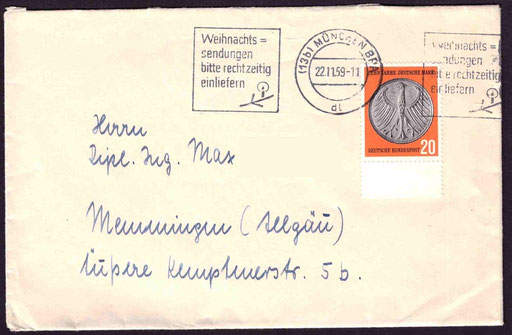 Weihnachts=
sendungen
bitte rechtzeitig
einliefern
(13b) MÜNCHEN BPA
22.11.59-11
qt
Weihnachts=
sendungen
bitte rechtzeitig
einliefern
ZEHN JAHRE DEUTSCHE MARK
DEUTSCHE BUNDESPOST 20
Herrn
Dipl. Ing. Max
Memmingen (Allgäu)
Äußere Kemptnerstr. 5 b.